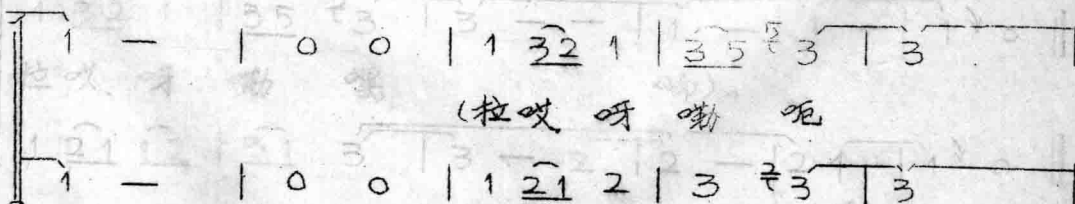 1 — | 0 0 | 1 32 1 | 35 5 3 | 3 |
(拉哎 呀 嘞 呃
1 — | 0 0 | 1 21 2 | 3 2 3 | 3 |